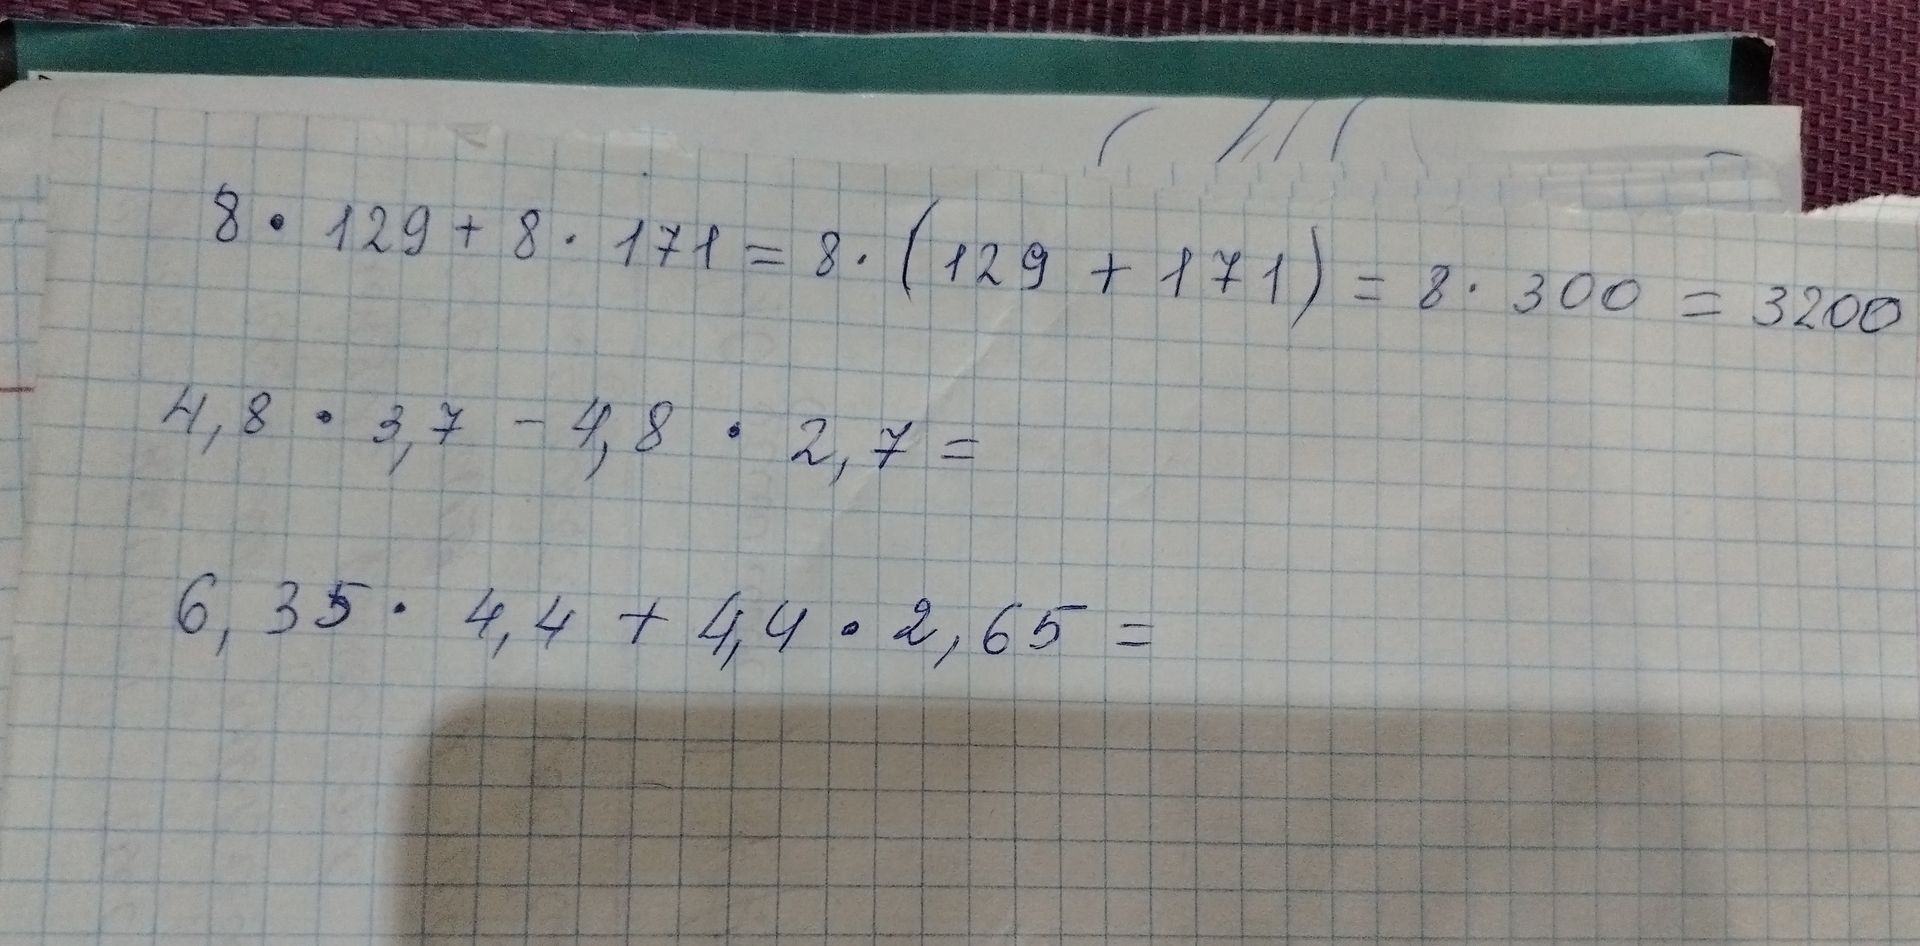 8 · 129 + 8 · 171 = 8 · (129 + 171) = 8 · 300 = 3200
4,8 · 3,7 - 4,8 · 2,7 =
6,35 · 4,4 + 4,4 · 2,65 =